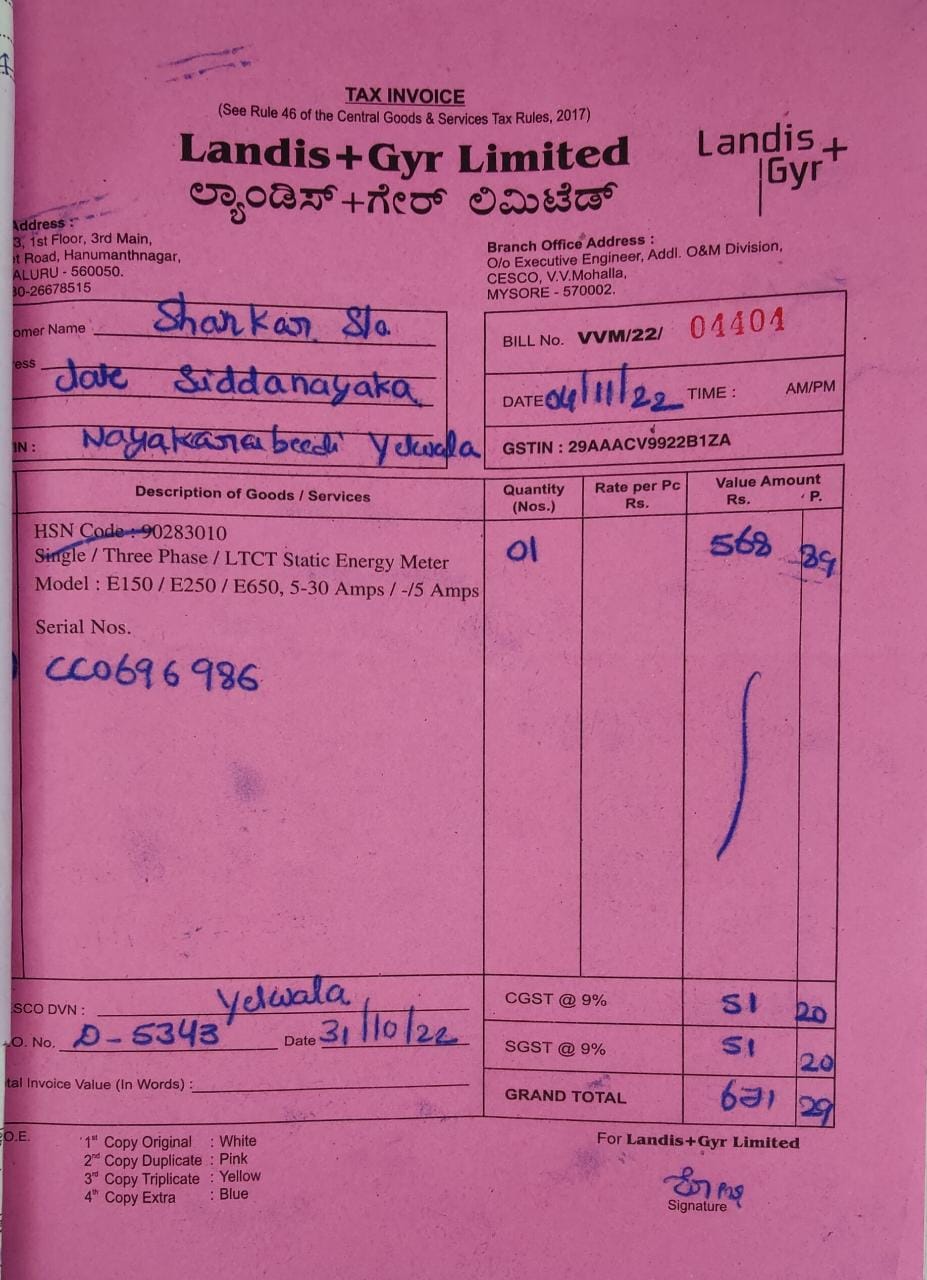 TAX INVOICE
(See Rule 46 of the Central Goods & Services Tax Rules, 2017)
Landis+Gyr Limited
ಲ್ಯಾಂಡಿಸ್+ಗೇರ್ ಲಿಮಿಟೆಡ್
Landis+
Gyr
Address :
3, 1st Floor, 3rd Main,
t Road, Hanumanthnagar,
ALURU - 560050.
30-26678515
Branch Office Address :
O/o Executive Engineer, Addl. O&M Division,
CESCO, V.V.Mohalla,
MYSORE - 570002.
omer Name Shankar S/o
ess late Siddanayaka
IN : Nayakarabeedi Yelwala
BILL No. VVM/22/ 04404
DATE 04/11/22 TIME : AM/PM
GSTIN : 29AAACV9922B1ZA
Description of Goods / Services Quantity (Nos.) Rate per Pc Rs. Value Amount Rs. P.
HSN Code : 90283010
Single / Three Phase / LTCT Static Energy Meter 01 568 89
Model : E150 / E250 / E650, 5-30 Amps / -/5 Amps
Serial Nos.
CC0696986
SCO DVN : Yelwala
O. No. D-5343 Date 31/10/22
tal Invoice Value (In Words) :
CGST @ 9% 51 20
SGST @ 9% 51 20
GRAND TOTAL 671 29
O.E.
1st Copy Original : White
2nd Copy Duplicate : Pink
3rd Copy Triplicate : Yellow
4th Copy Extra : Blue
For Landis+Gyr Limited
Signature